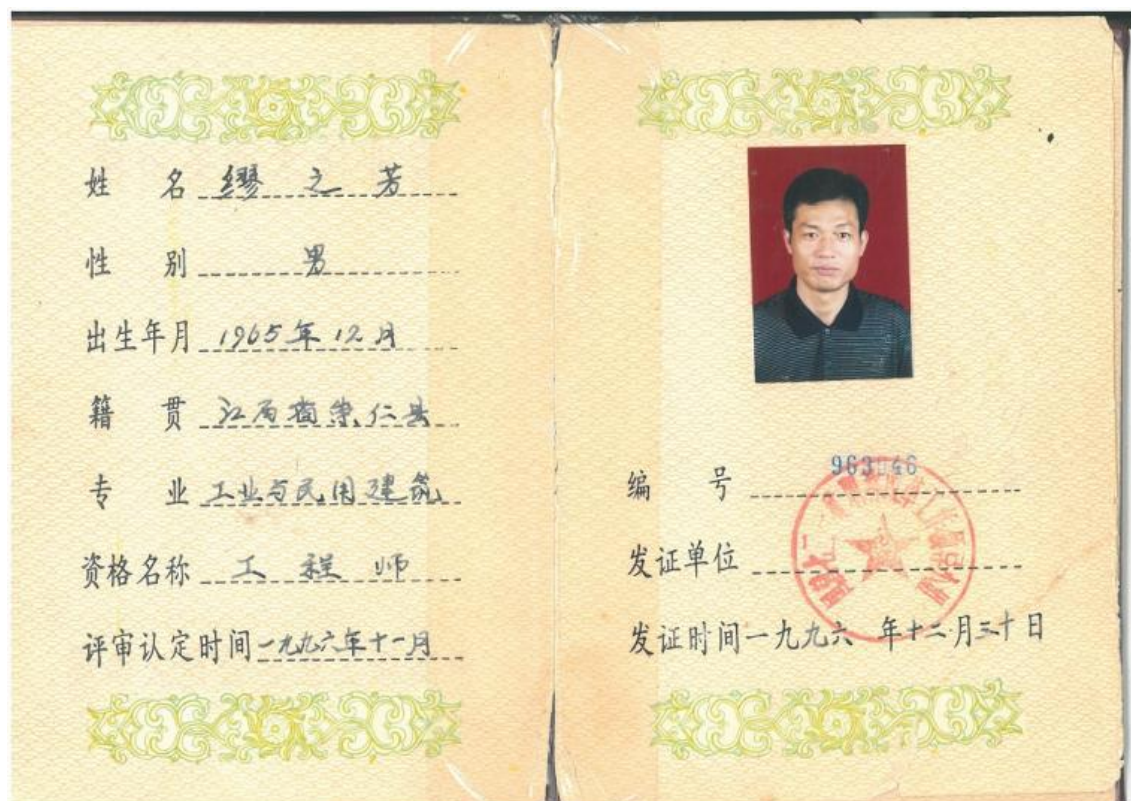 姓 名 缪之芳
性 别 男
出生年月 1965年12月
籍 贯 江西省崇仁县
专 业 工业与民用建筑
资格名称 工程师
评审认定时间 一九九六年十一月
编 号
发证单位
发证时间 一九九六 年十二月三十日